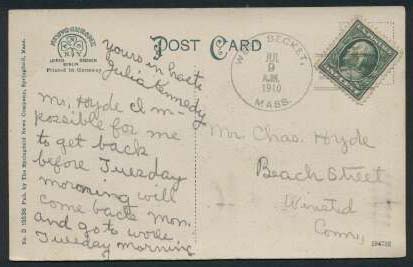 POST CARD
Printed in Germany
No. D 15535 Pub. by The Springfield News Company, Springfield, Mass.
W. BECKET,
JUL
9
A.M.
1910
MASS.
Mr. Hyde Im-
possible for me
to get back
before Tuesday
morning will
come back Mon.
and go to work
Tuesday morning
yours in haste
Julia Kennedy
Mr. Chas. Hyde
Beach Street
Winsted
Conn,